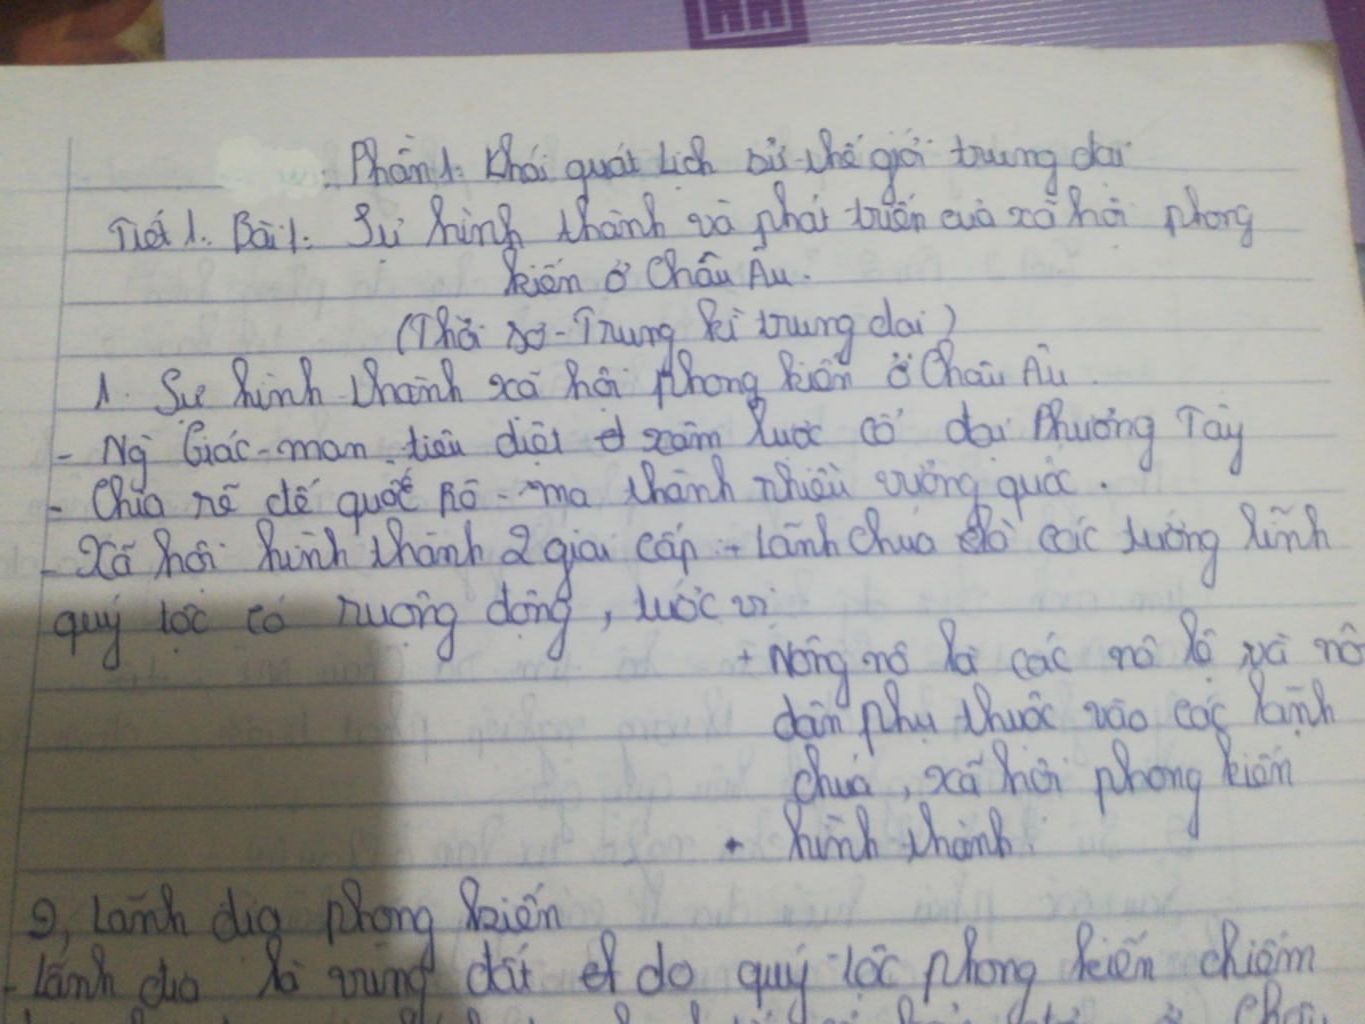 Phần 1: Khái quát lịch sử thế giới trung đại
Tiết 1. Bài 1: Sự hình thành và phát triển của xã hội phong
kiến ở Châu Âu.
(Thời sơ - Trung kì trung đại)
1. Sự hình thành xã hội phong kiến ở Châu Âu.
- Ng Giéc-man tiêu diệt xâm lược cổ đại Phương Tây
- Chia rẽ đế quốc Rô-ma thành nhiều vương quốc.
- Xã hội hình thành 2 giai cấp + Lãnh chúa là các tướng lĩnh
quý tộc có ruộng đông, tước vị
+ Nông nô là các nô lệ và nô
dân phụ thuộc vào các lãnh
chúa, xã hội phong kiến
hình thành.
2, Lãnh địa phong kiến
- Lãnh địa là vùng đất do quý tộc phong kiến chiếm